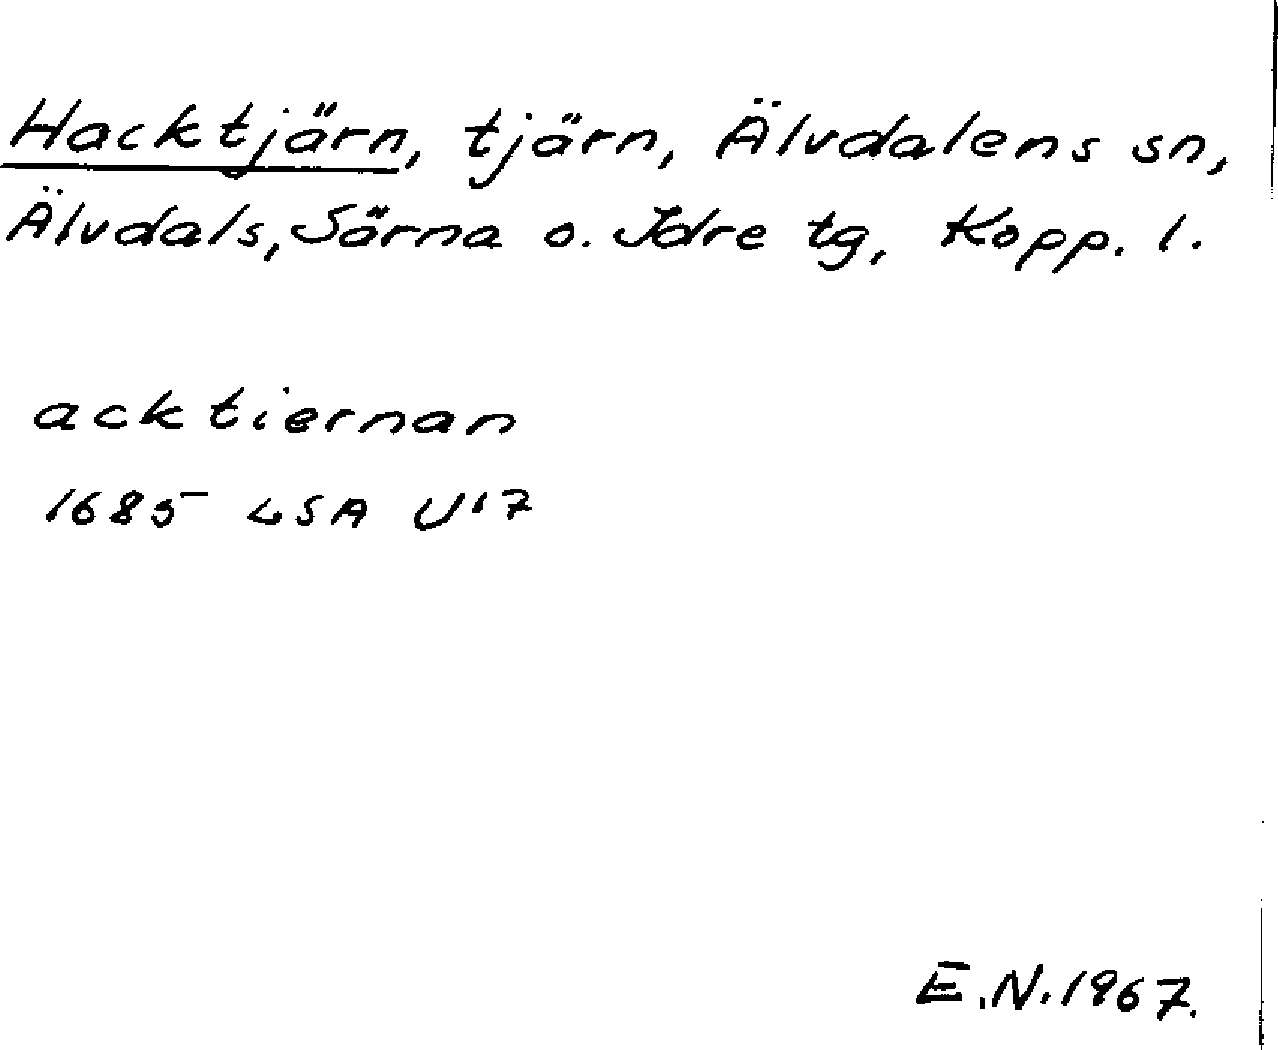 Hacktjärn, tjärn, Älvdalens sn,
Älvdals, Särna o. Idre tg, Kopp. l.
acktiernan
1685 LSA U¹7
E.N. 1967.